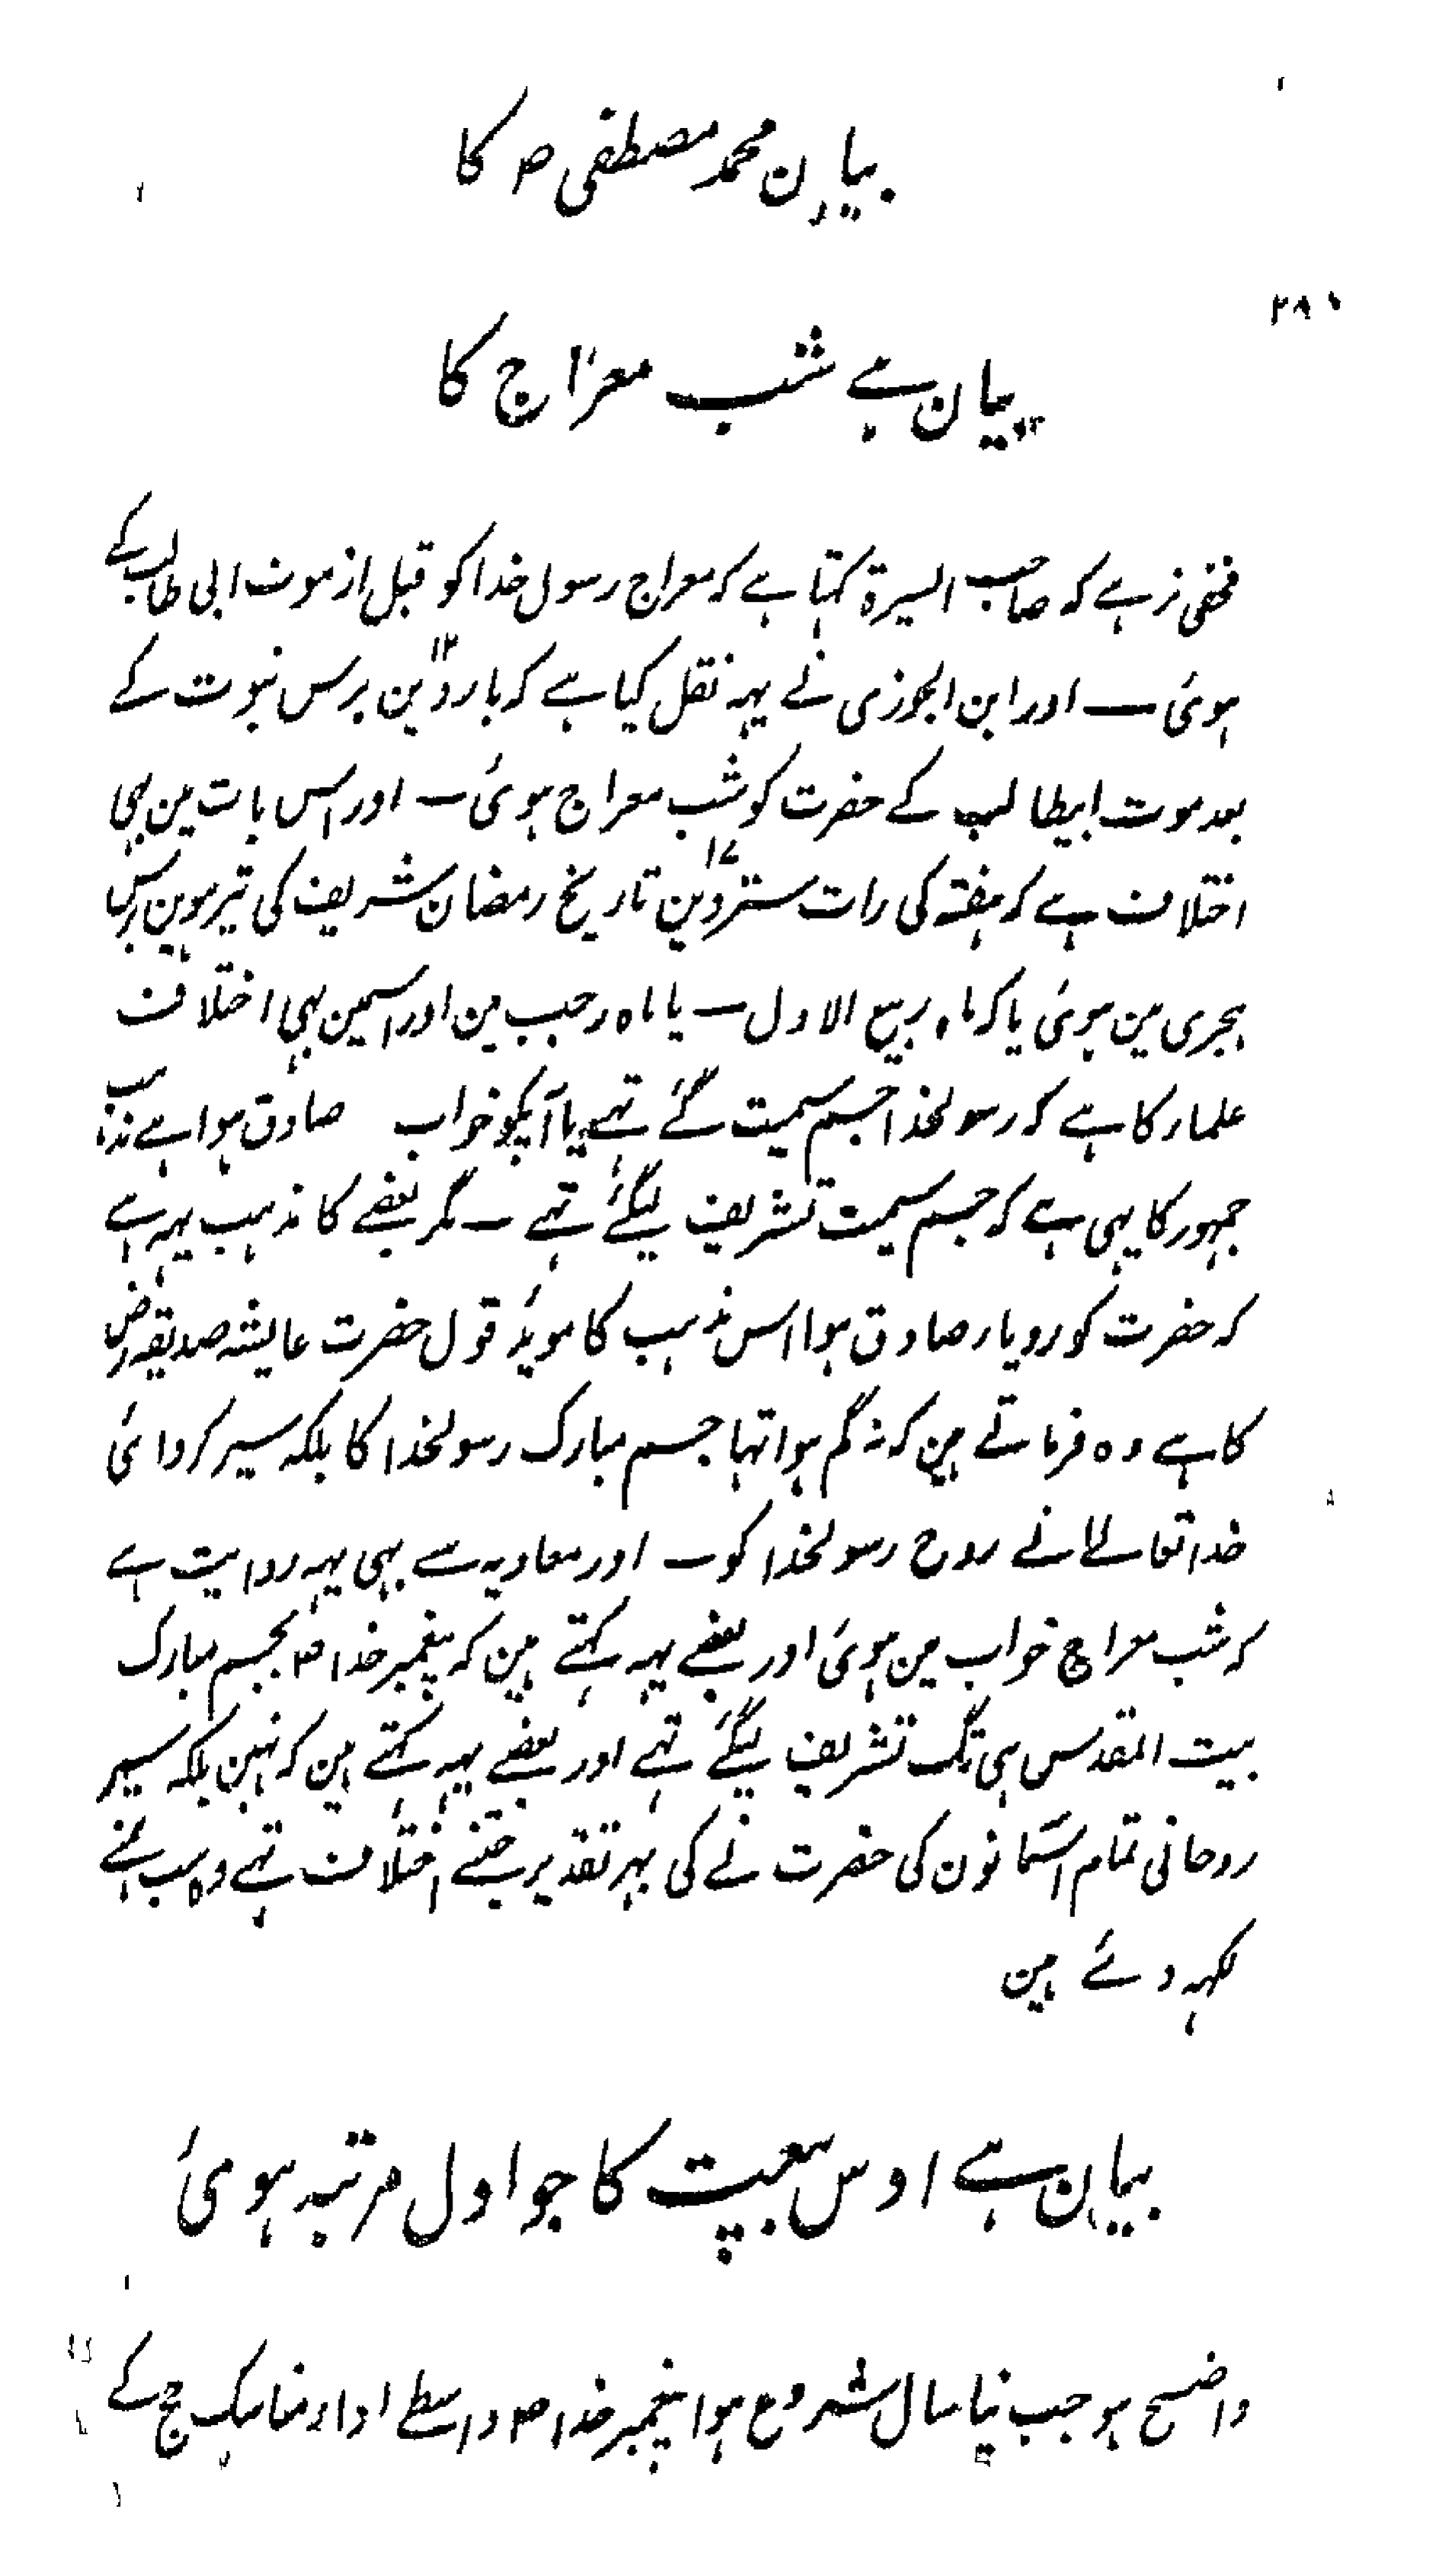 بیان محمد مصطفی ص کا
۲۸۰
بیان ہے شب معراج کا
مخفی نرہے کہ صاحب السیرۃ کہتا ہے کہ معراج رسول خدا کو قبل از موت ابی طالب کے
ہوئی ــ اور ابن الجوزی نے یہہ نقل کیا ہے کہ بارہوین ۱۲ برس نبوت کے
بعد موت ابیطالب کے حضرت کو شب معراج ہوئی ــ اور اس بات مین بہی
اختلاف ہے کہ ہفتہ کی رات سترہوین ۱۷ تاریخ رمضان شریف کی تیرہوین برس
ہجری مین ہوئی یا کہ ماہ ربیع الاول ــ یا ماہ رجب مین اور اسمین بہی اختلاف
علماء کا ہے کہ رسولخدا جسم سمیت گئے تہے یا آپکو خواب صادق ہوا ہے مذہب
جمہور کا یہی ہے کہ جسم سمیت تشریف لیگئے تہے ــ مگر بعضے کا مذہب یہہ ہے
کہ حضرت کو رویاء صادق ہوا اس مذہب کا موید قول حضرت عایشہ صدیقہ رض
کا ہے وہ فرماتے ہین کہ نہ گم ہوا تہا جسم مبارک رسولخدا کا بلکہ سیر کروائی
خدا تعالے نے روح رسولخدا کو ــ اور معاویہ سے بہی یہہ روایت ہے
کہ شب معراج خواب مین ہوئی اور بعضے یہہ کہتے ہین کہ پیغمبر خدا ص بجسم مبارک
بیت المقدس ہی تگ تشریف لیگئے تہے اور بعضے یہہ کہتے ہین کہ نہین بلکہ سیر
روحانی تمام آسمانون کی حضرت نے کی بہر تقدیر جتنے اختلاف تہے وہ سب
لکہہ دئے ہین
بیان ہے اوس بیعت کا جو اول مرتبہ ہوئی
واضح ہو جب نیا سال شروع ہوا پیغمبر خدا ص واسطے اداء مناسک حج کے